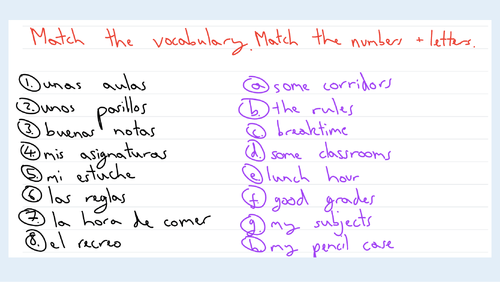 Match the vocabulary. Match the numbers + letters.
1. unas aulas
2. unos pasillos
3 buenas notas
4 mis asignaturas
5 mi estuche
6 las reglas
7. la hora de comer
8. el recreo
a some corridors
b. the rules
c. breaktime
d. some classrooms
e. lunch hour
f. good grades
g. my subjects
h my pencil case